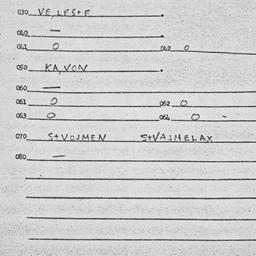 030 VE, LESTE .
040 — .
041 0 042 0
050 KA, VON .
060 —
061 0 062 0
063 0 064 0 -
070 STVOJMEN STVAJMELAX
080 —